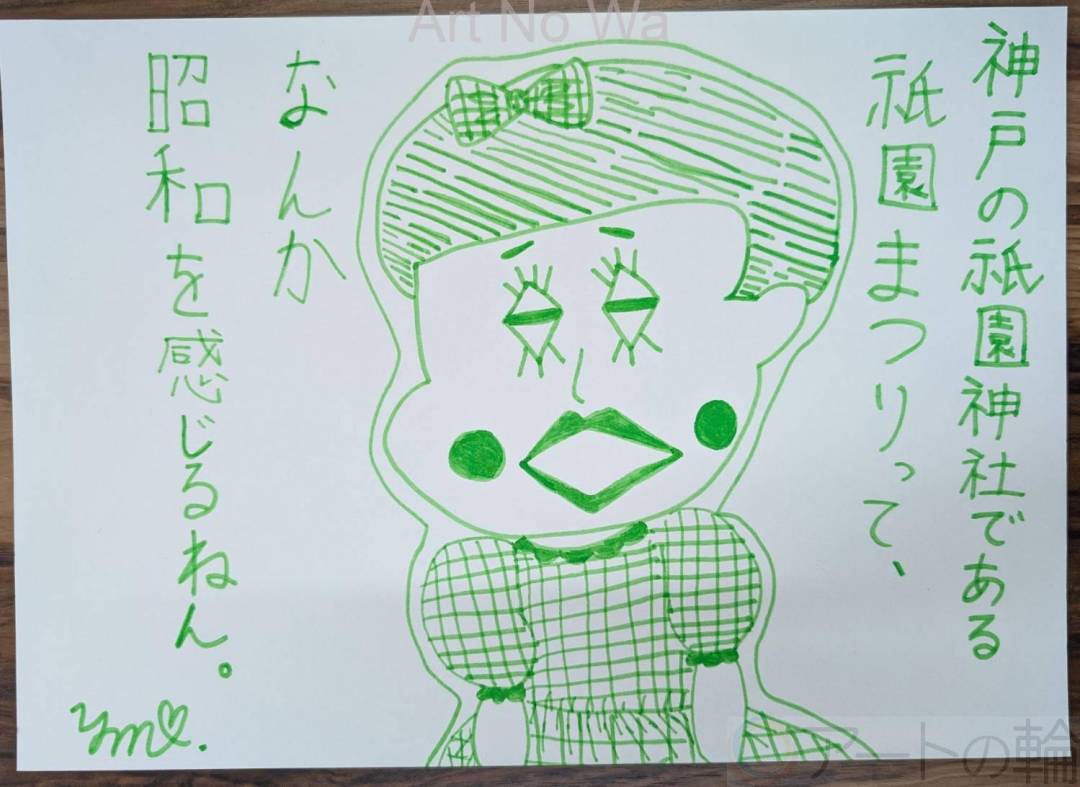 Art No Wa
神戸の祇園神社である
祇園まつりって、
なんか
昭和を感じるねん。
ym♡.
アートの輪